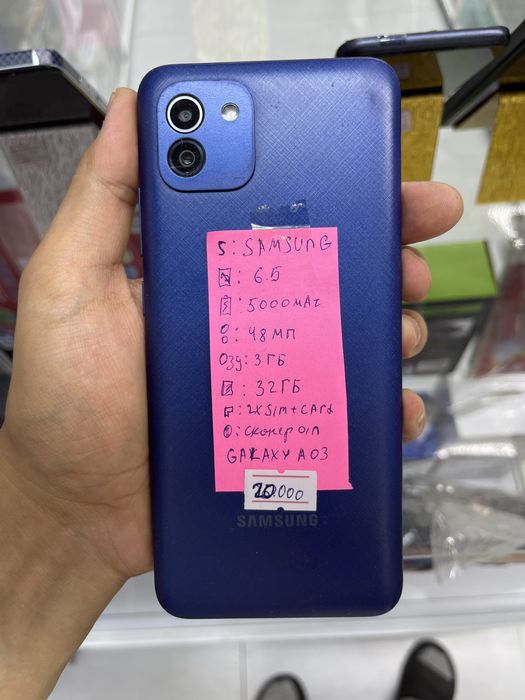 S: SAMSUNG
: 6.5
: 5000мАг
: 48 мп
Озу: 3 ГБ
: 32 ГБ
: 2xSIM + CARd
: сканер оп
GALAXY A03
20.000
SAMSUNG